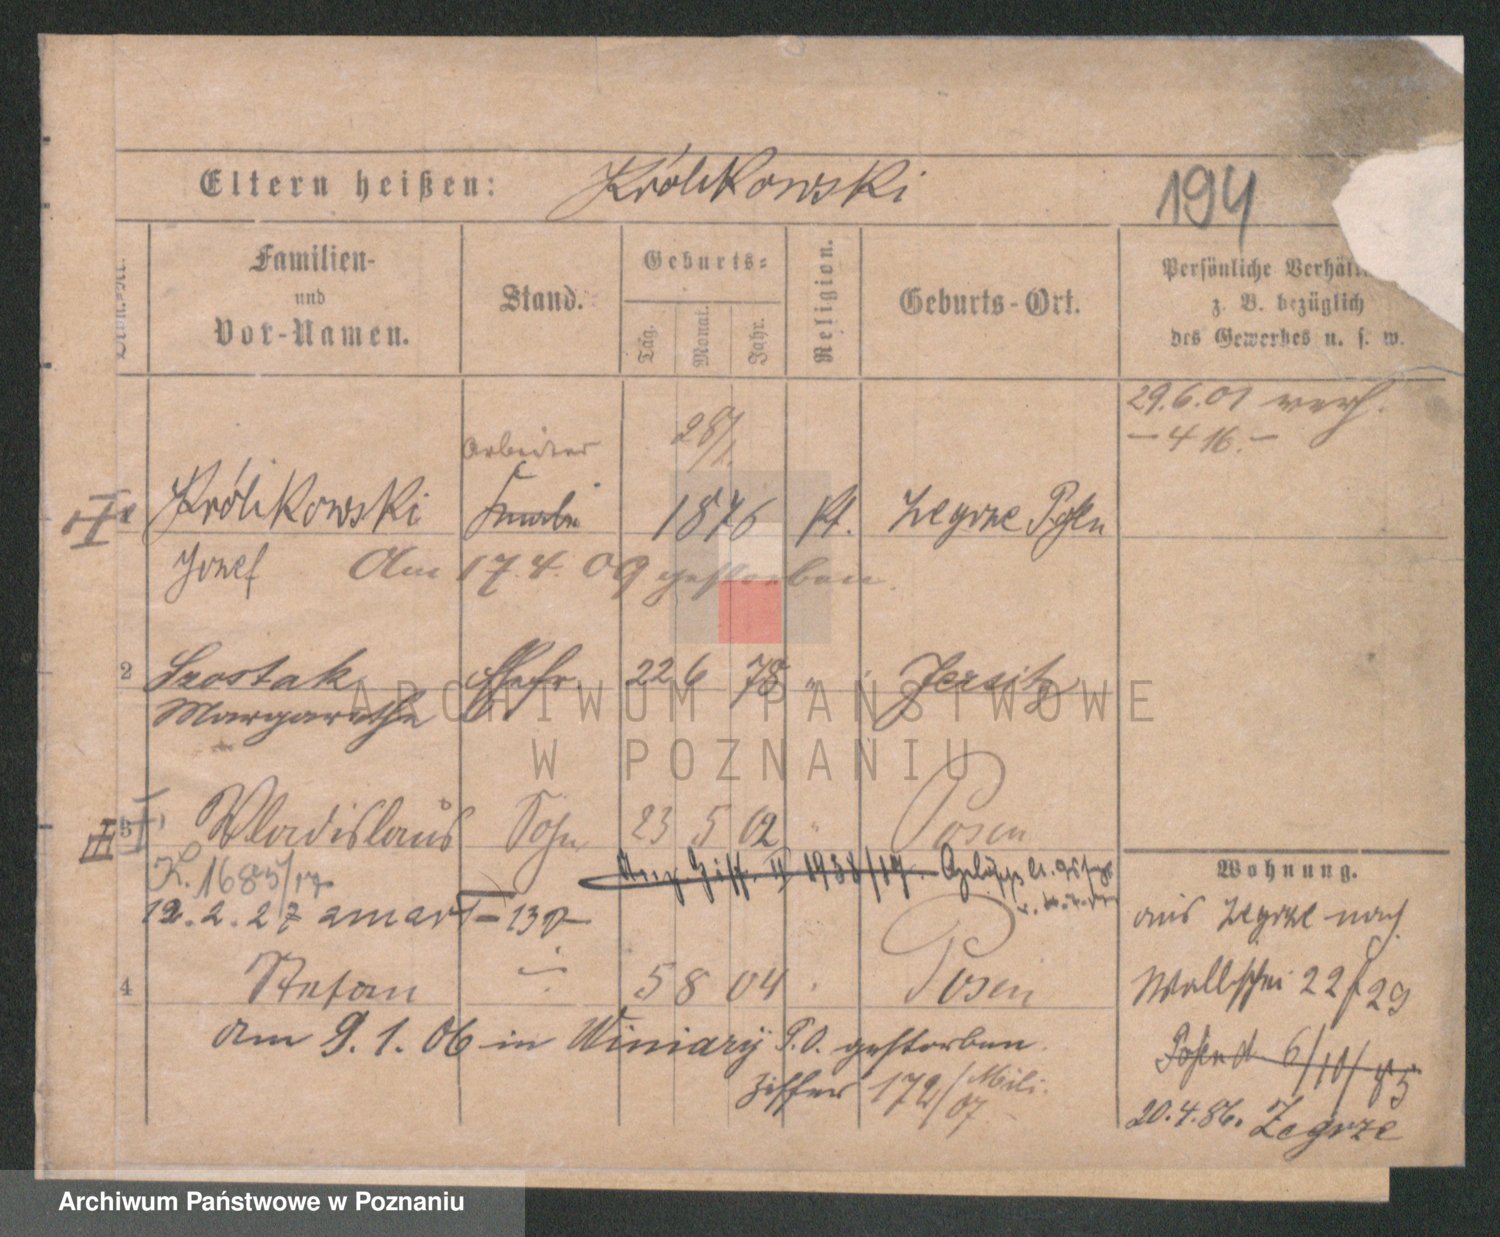 Eltern heißen: Królikowski 194
Familien-
und
Vor-Namen.
Stand.
Geburts-
Tag.
Monat.
Jahr.
Religion.
Geburts-Ort.
Persönliche Verhält
z. B. bezüglich
des Gewerbes u. s. w.
29.6.01 verh.
– 4 16. –
Arbeiter
28/1.
Królikowski
1876 kt. Zegrze Posen
Jozef Am 17.4.09 gestorben
2 Szostak Ehefr. 22 6 78 " Jersitz
Margarethe
3 Wladislaus Sohn 23 5 02 " Posen
K. 1685/17
Ziff. II 1938/17.
12.2.27 zmarł
4 Stefan 5 8 04 " Posen
am 9.1.06 in Winiary P.O. gestorben.
Ziffer 172/07 Mili.
Wohnung.
aus Zegrze nach
Wallischei 22/29
Posen d 6/10/85
20.4.86. Zegrze
ARCHIWUM PAŃSTWOWE
W POZNANIU
Archiwum Państwowe w Poznaniu